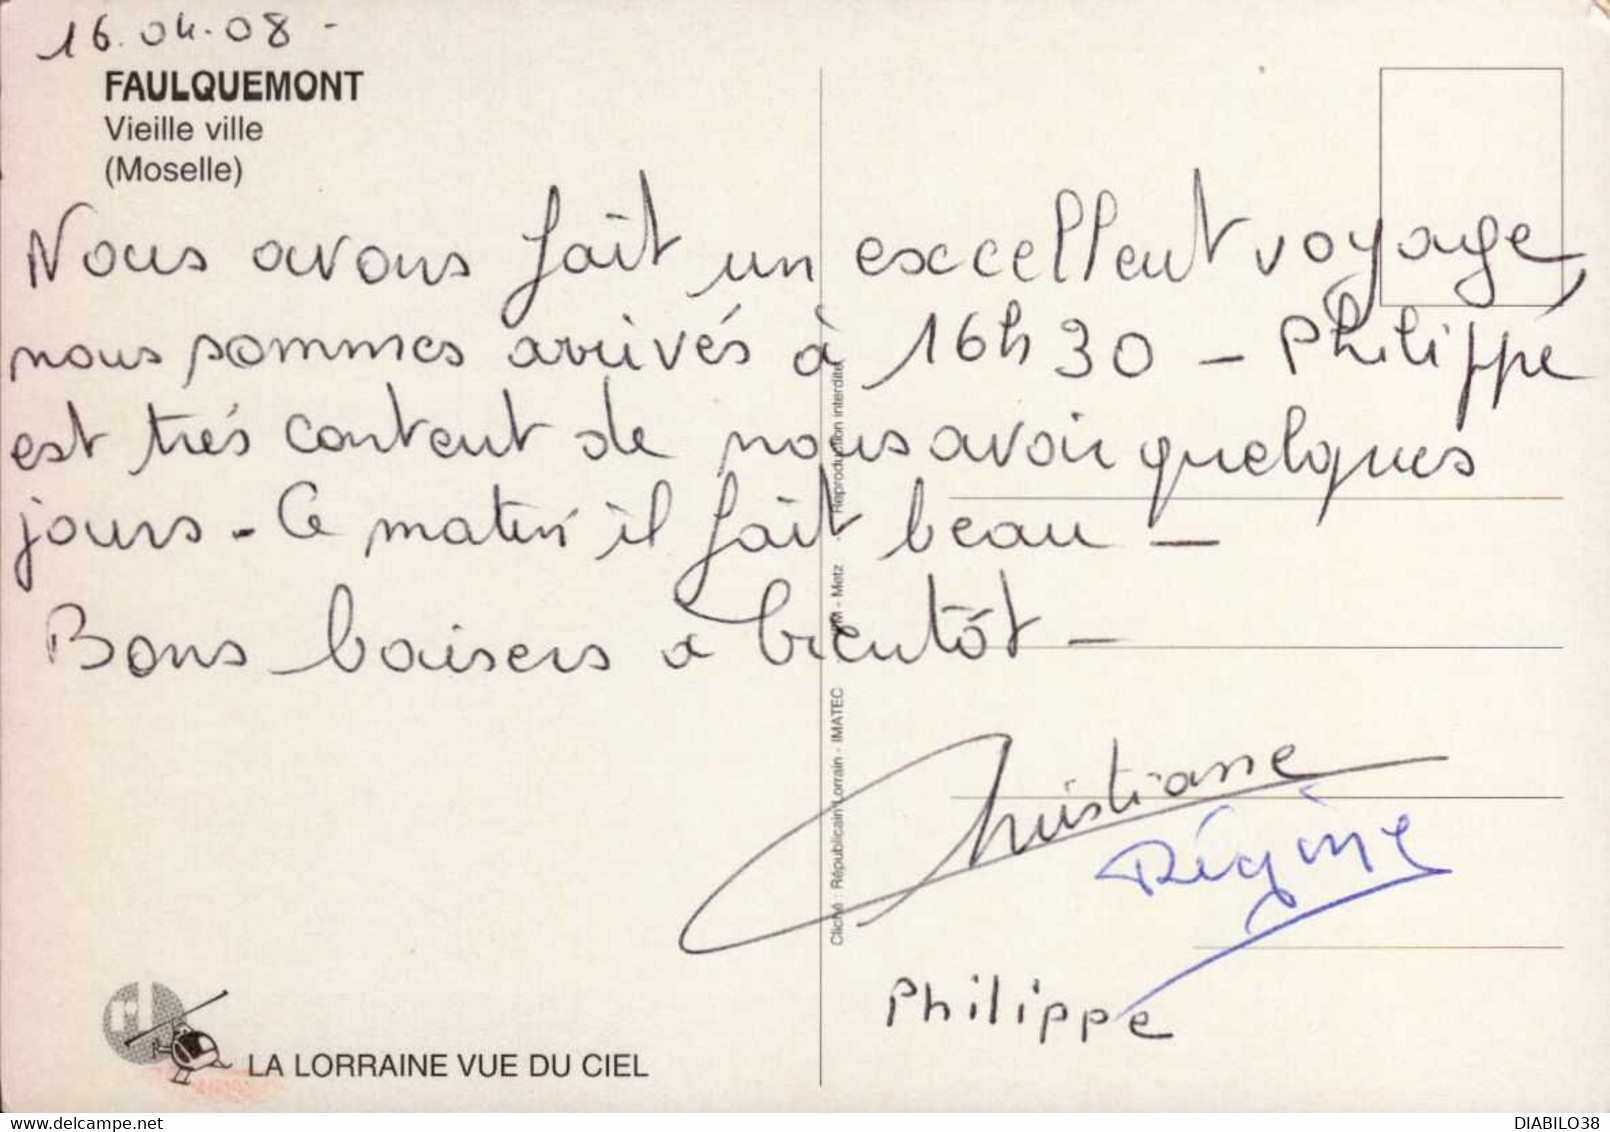 16.04.08 -
FAULQUEMONT
Vieille ville
(Moselle)
Nous avons fait un excellent voyage,
nous sommes arrivés à 16h30 - Philippe
est trés content de nous avoir quelques
jours - Ce matin il fait beau -
Bons baisers a bientôt -
Christiane
Régine
Philippe
Cliché : Républicain Lorrain - IMATEC - Metz Reproduction interdite
LA LORRAINE VUE DU CIEL
DIABILO38